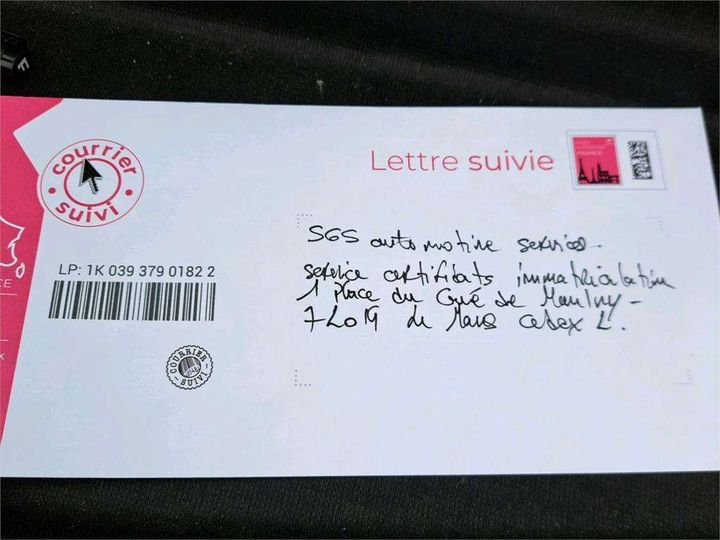 courrier
suivi
Lettre suivie
FRANCE
SGS automotive services.
service certificats immatriculation
1 place du Gué de Maulny -
72019 Le Mans cedex 2.
CE
LP: 1K 039 379 0182 2
COURRIER
SUIVI
X